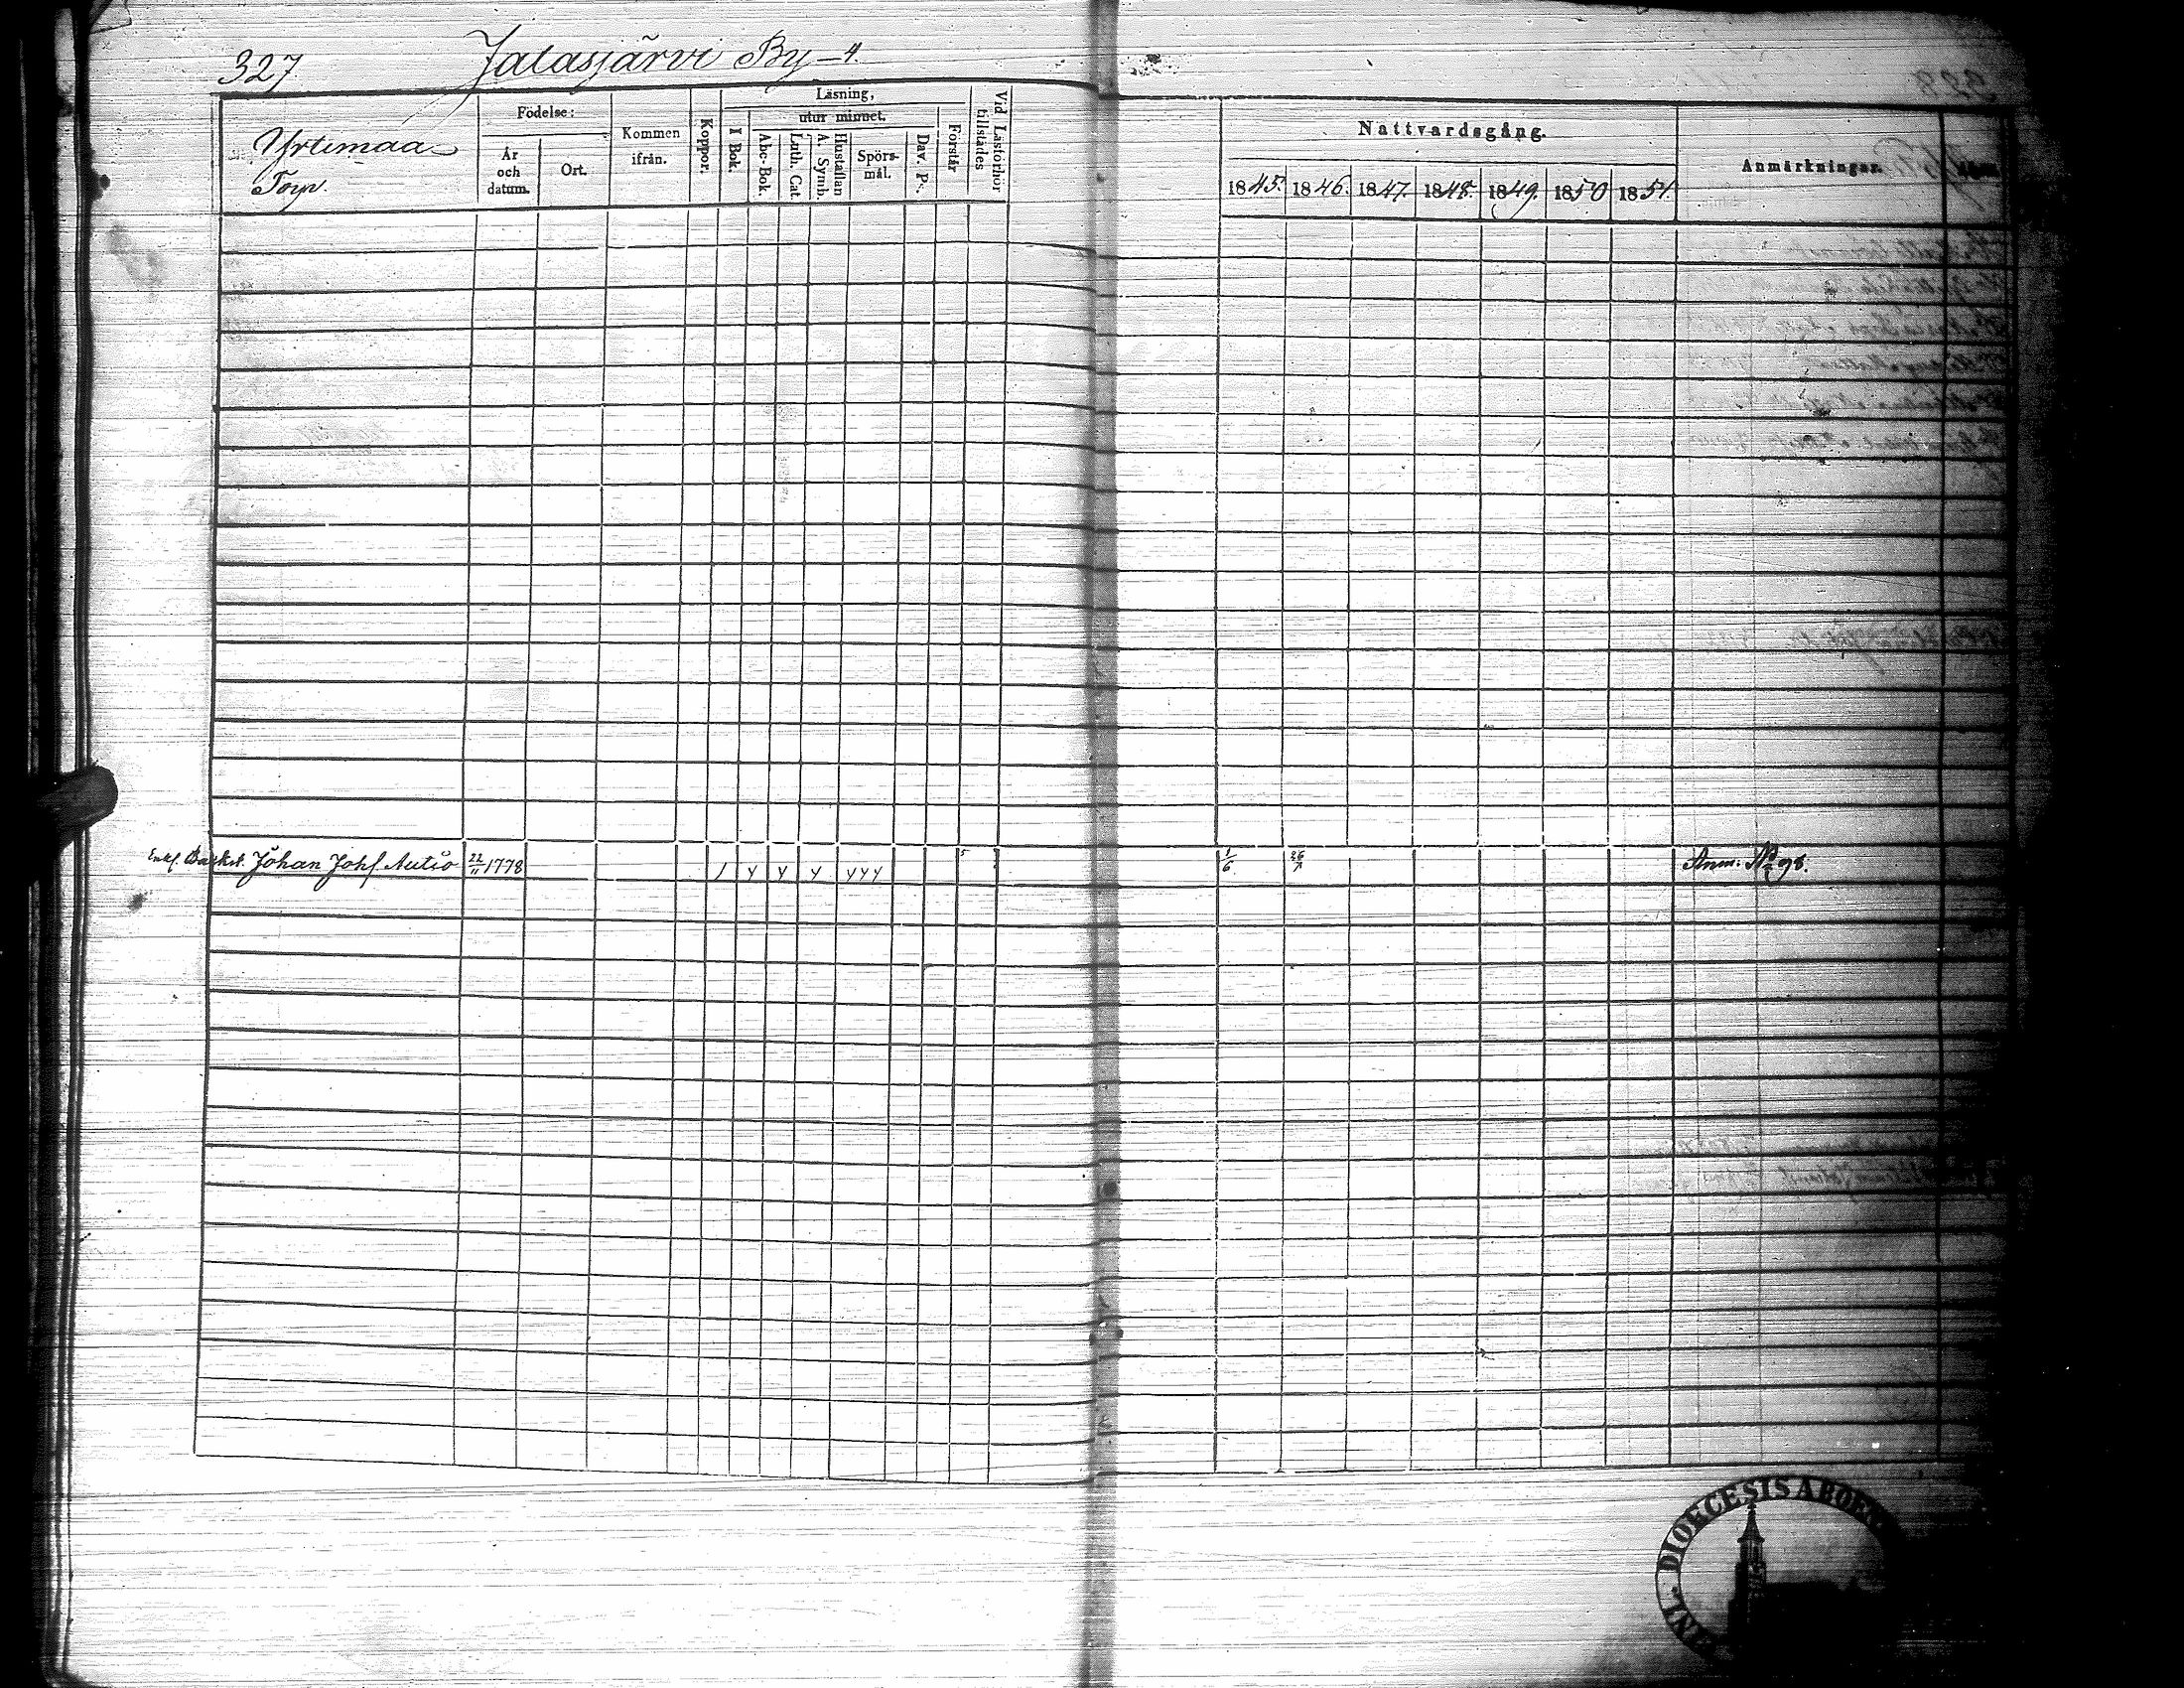 327. Jalasjärvi By 4.
Yrtimaa
Torp.
Födelse:
År
och
datum.
Ort.
Kommen
ifrån.
Koppor.
Läsning,
I Bok.
utur minnet.
Abc-Bok.
Luth. Cat.
A. Symb.
Hustaflan
Spörs-
mål.
Dav. Ps.
Förstår
Vid Läsförhör
tillstädes
Nattvardsgång.
1845. 1846. 1847. 1848. 1849. 1850 1851.
Anmärkningar.
Enkl. Backst. Johan Johs. Autio 22/11 1778 5 1/6 26/7 Anm. No 98.
DIOECESIS ABOEN